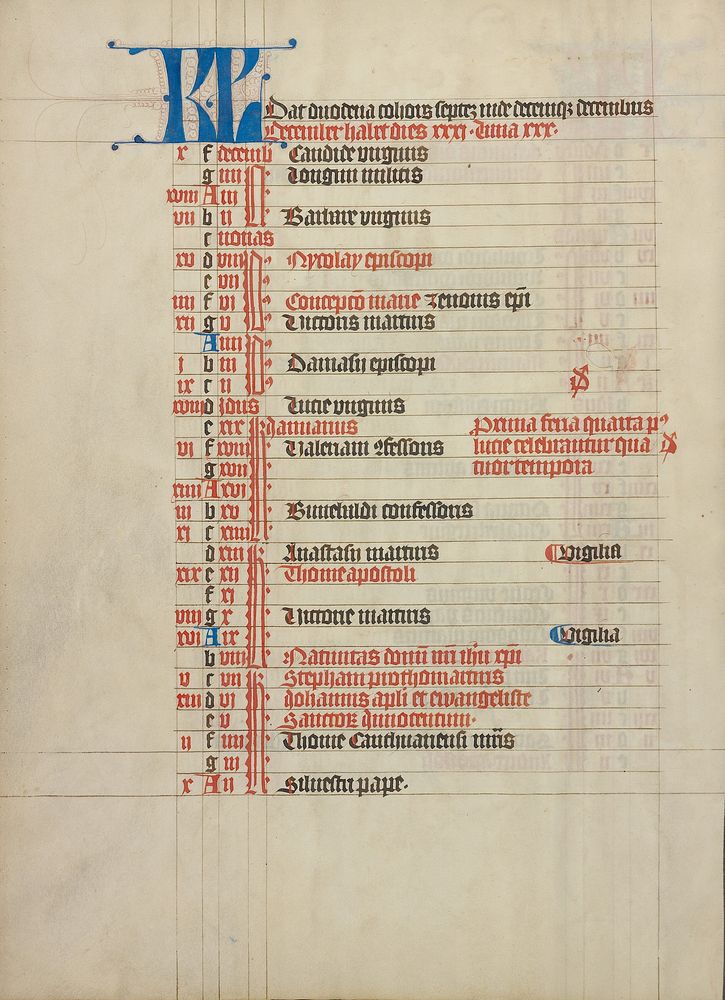 KL Dat duodena cohors septez inde decemqz decembris
December habet dies xxxi · Luna xxx ·
x f decemb Candide virginis
g iiii N Longini militis
xviii A iii
vii b ii Barbare virginis
c nonas
xv d viii Nycolay episcopi
e vii
iiii f vi Concepcō marie zenonis epī
xii g v Victoris martiris
A iiii
i b iii Damasii episcopi
ix c ii
xvii d idus Lucie virginis
e xix kl Januarius Prima feria quarta p9
vi f xviii Valeriani 9fessoris lucie celebrantur qua
g xvii tuor tempora
xiiii A xvi
iii b xv confessoris
xi c xiiii
d xiii Anastasii martiris Vigilia
xix e xii Thome apostoli
f xi
viii g x Victorie martiris
xvi A ix Vigilia
b viii Natiuitas domī nrī ihu xpi
v c vii Stephani prothomartiris
xiii d vi Johannis apli et ewangeliste
e v Sanctoꝝ Innocentum ·
ii f iiii Thome mrīs
g iii
x A ii Siluestri pape ·